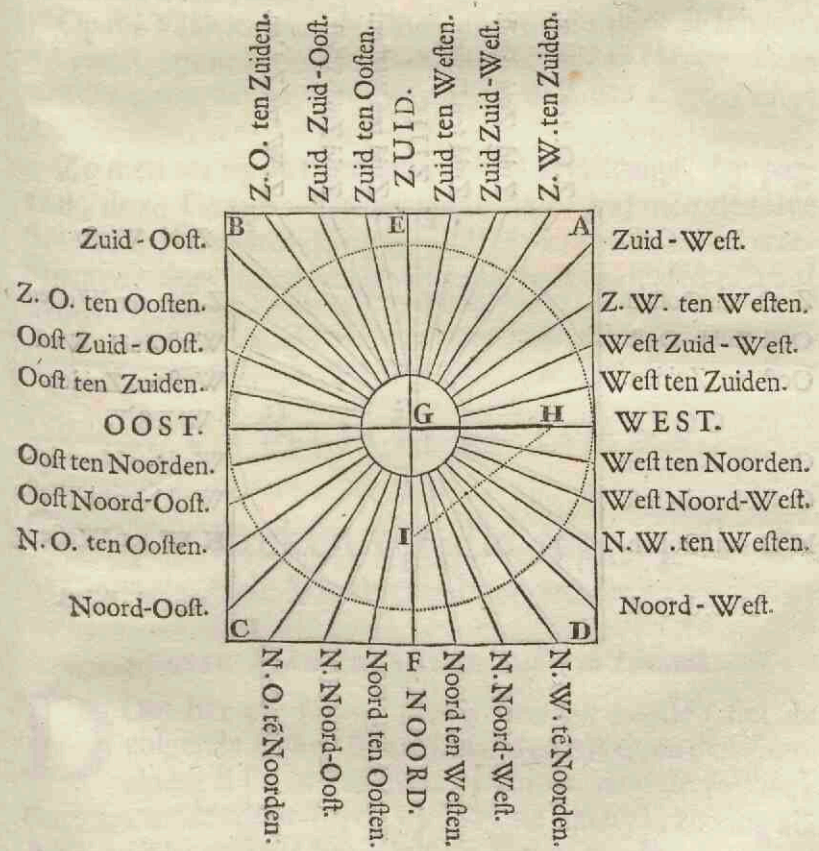 Z. O. ten Zuiden.
Zuid Zuid-Ooſt.
Zuid ten Ooſten.
ZUID.
Zuid ten Weſten.
Zuid Zuid-Weſt.
Z. W. ten Zuiden.
B
E
A
Zuid-Ooſt.
Z. O. ten Ooſten.
Ooſt Zuid-Ooſt.
Ooſt ten Zuiden.
OOST.
Ooſt ten Noorden.
Ooſt Noord-Ooſt.
N. O. ten Ooſten.
Noord-Ooſt.
Zuid-Weſt.
Z. W. ten Weſten.
Weſt Zuid-Weſt.
Weſt ten Zuiden.
WEST.
Weſt ten Noorden.
Weſt Noord-Weſt.
N. W. ten Weſten.
Noord-Weſt.
G
H
I
C
F
D
N. O. tē Noorden.
N. Noord-Ooſt.
Noord ten Ooſten.
NOORD.
Noord ten Weſten.
N. Noord-Weſt.
N. W. tē Noorden.